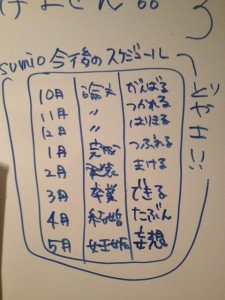 sumio 今後のスケジュール
10月 論文 がんばる
11月 〃 つかれる
12月 〃 はりきる
1月 完成 つぶれる
2月 まける
3月 卒業 できる
4月 結婚 たぶん
5月 妊娠 妄想
どや!!